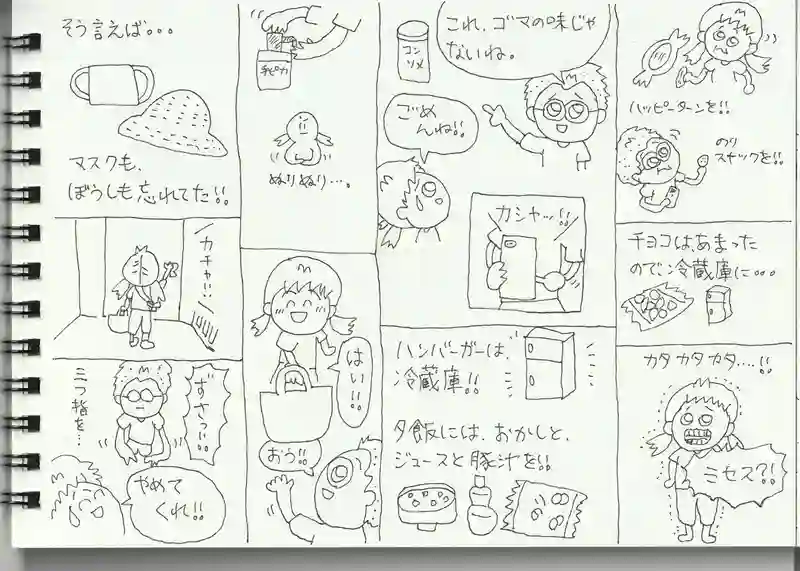 そう言えば。。。
マスクも、
ぼうしも忘れてた!!
カチャ!!
三つ指を…
ずさっ!!
やめて
くれ!!
手ピカ
ぬりぬり…。
はい!!
おう!!
コン
ソメ
これ、ゴマの味じゃ
ないね。
ごめ
んね!!
カシャッ!!
ハンバーガーは、
冷蔵庫!!
夕飯には、おかしと、
ジュースと豚汁を!!
ハッピーターンを!!
のり
スナックを!!
チョコは、あまった
ので、冷蔵庫に…
カタカタカタ….!!
ミセス?!